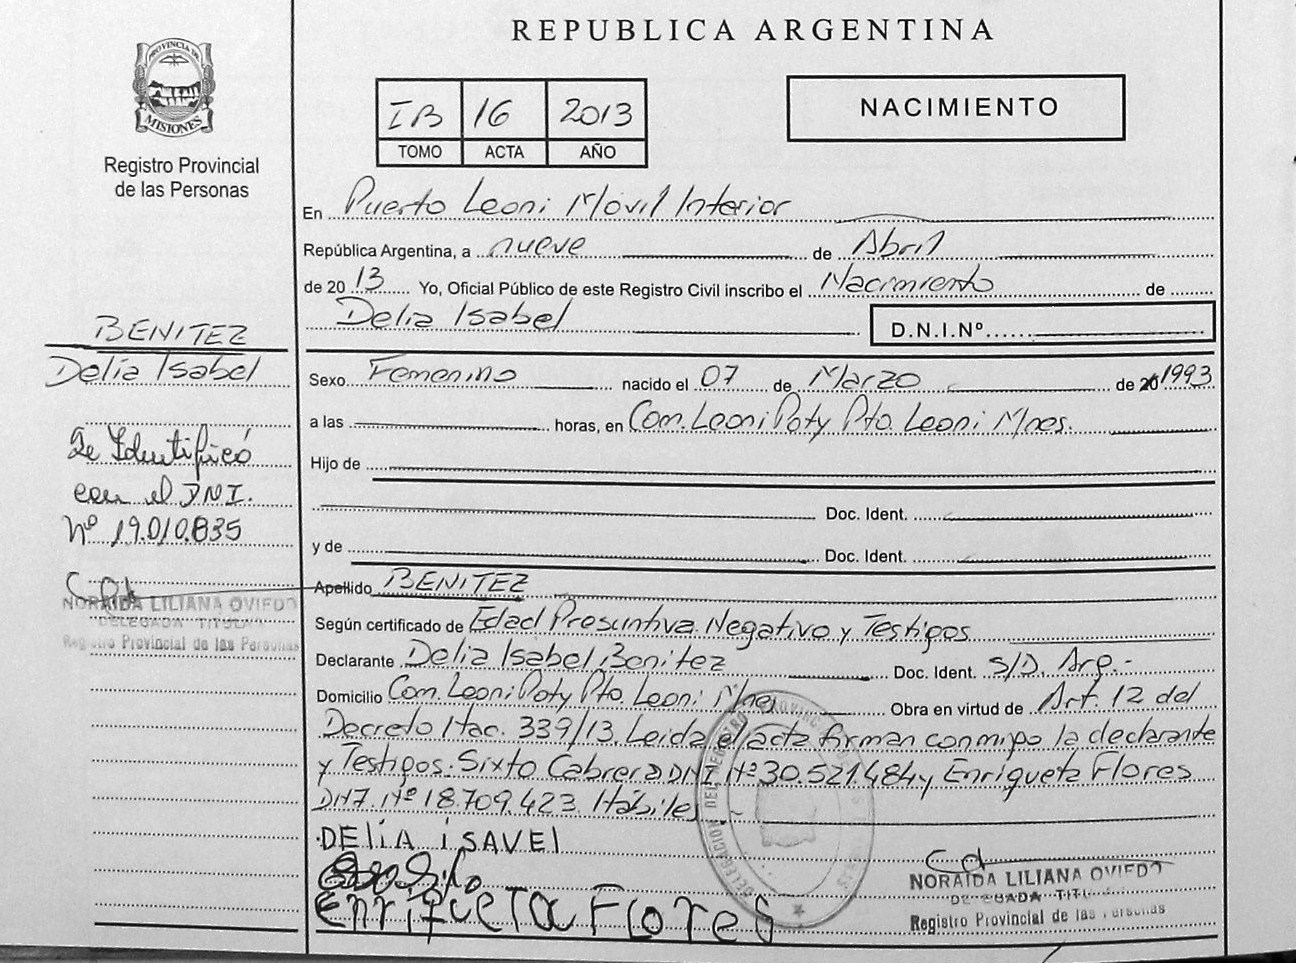 REPUBLICA ARGENTINA
PROVINCIA DE
MISIONES
Registro Provincial
de las Personas
IB 16 2013
TOMO ACTA AÑO
NACIMIENTO
En Puerto Leoni Móvil Interior
República Argentina, a nueve de Abril
de 2013 Yo, Oficial Público de este Registro Civil inscribo el Nacimiento de
Delia Isabel D.N.I.Nº
BENITEZ
Delia Isabel
Se Identificó
con el DNI.
Nº 19.010.835
NORAIDA LILIANA OVIEDO
DELEGADA TITULAR
Registro Provincial de las Personas
Sexo Femenino nacido el 07 de Marzo de 20 1993
a las horas, en Com. Leoni Poty Pto. Leoni Mnes.
Hijo de
Doc. Ident.
y de Doc. Ident.
Apellido BENITEZ
Según certificado de Edad Presuntiva. Negativo y Testigos
Declarante Delia Isabel Benitez Doc. Ident. S/D. Arg.-
Domicilio Com. Leoni Poty Pto. Leoni Mnes Obra en virtud de Art. 12 del
Decreto Nac. 339/13. Leida el acta firman conmigo la declarante
y Testigos: Sixto Cabrera DNI Nº 30.521.484 y Enriqueta Flores
DNI. Nº 18.709.423. Hábiles.-
DELiA iSAVEl
EnriquETA FLores
NORAIDA LILIANA OVIEDO
DELEGADA TITU
Registro Provincial de las Personas
DELEGACION DEL REGISTRO PROVINC